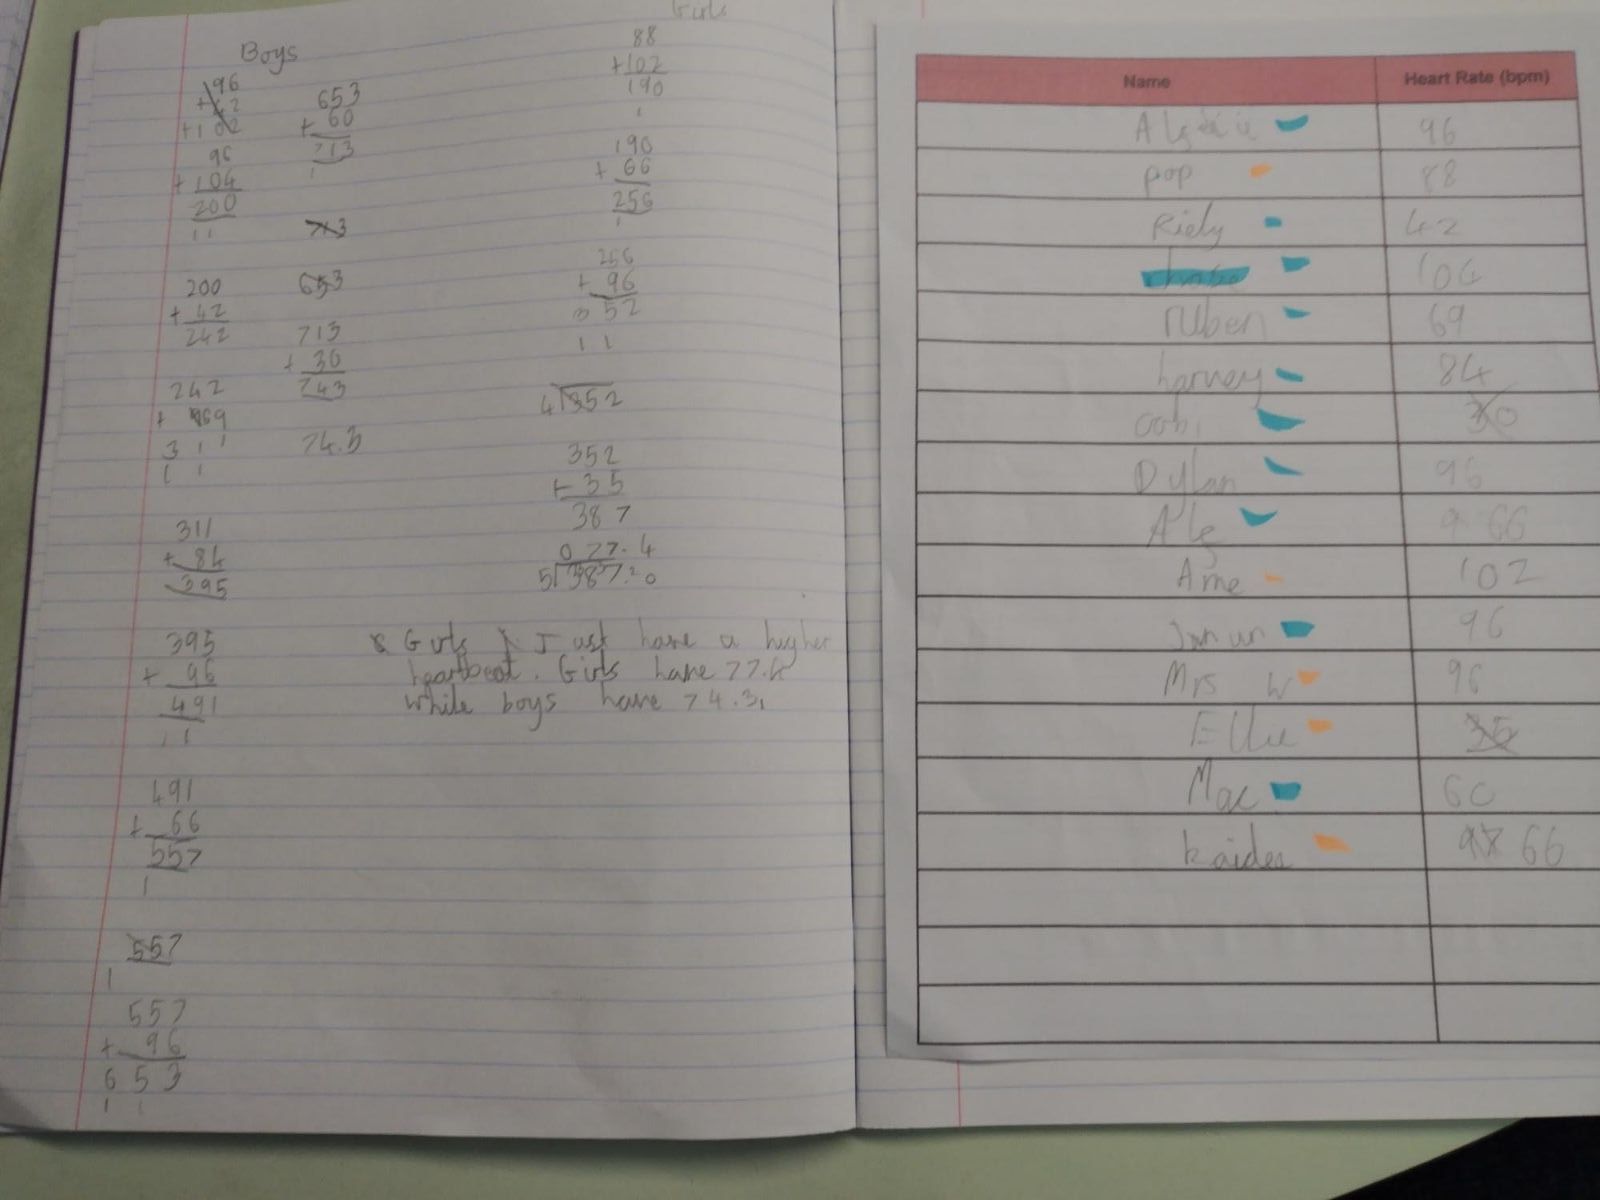 Boys
96
+ 42
+102
96
+ 104
200
11
200
+ 42
242
242
+ 69
311
1 1
311
+ 84
395
395
+ 96
491
11
491
+ 66
557
1
557
1
557
+ 96
653
1 1
653
+ 60
713
1
713
653
713
+ 30
743
74.3
Girls
88
+102
190
1
190
+ 66
256
1
256
+ 96
352
1 1
4 352
352
+ 35
387
0 77.4
5 387.20
Girls just have a higher
heartbeat. Girls have 77.4
while boys have 74.3.
Name Heart Rate (bpm)
96
pop 88
Riely 42
104
ruben 69
harvey 84
30
Dylan 96
Ale 9 66
Ame 102
96
Mrs W 96
Ellie 35
Mac 60
66